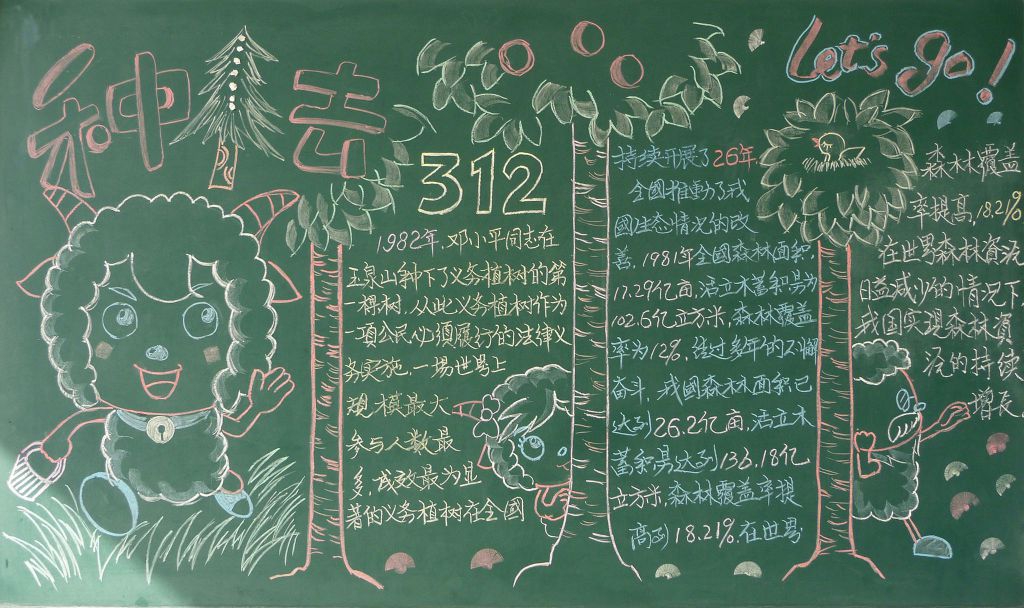 种 去
Let's go!
312
1982年，邓小平同志在
玉泉山种下了义务植树的第
一棵树，从此义务植树作为
一項公民必須履行的法律义
务实施，一場世界上
規模最大
参与人数最
多，成效最为显
著的义务植树在全國
持续开展了26年，
全國推動了我
國生态情况的改
善，1981年全国森林面积，
17.29亿亩，活立木蓄积量为
102.6亿立方米，森林覆盖
率为12%，经过多年的不懈
奋斗，我國森林面积已
达到26.2亿亩，活立木
蓄积量达到136.18亿
立方米，森林覆盖率提
高到18.21%，在世界
森林覆盖
率提高，18.21%
在世界森林資沅
日益减少的情况下，
我国实現森林資
沅的持续
增长。